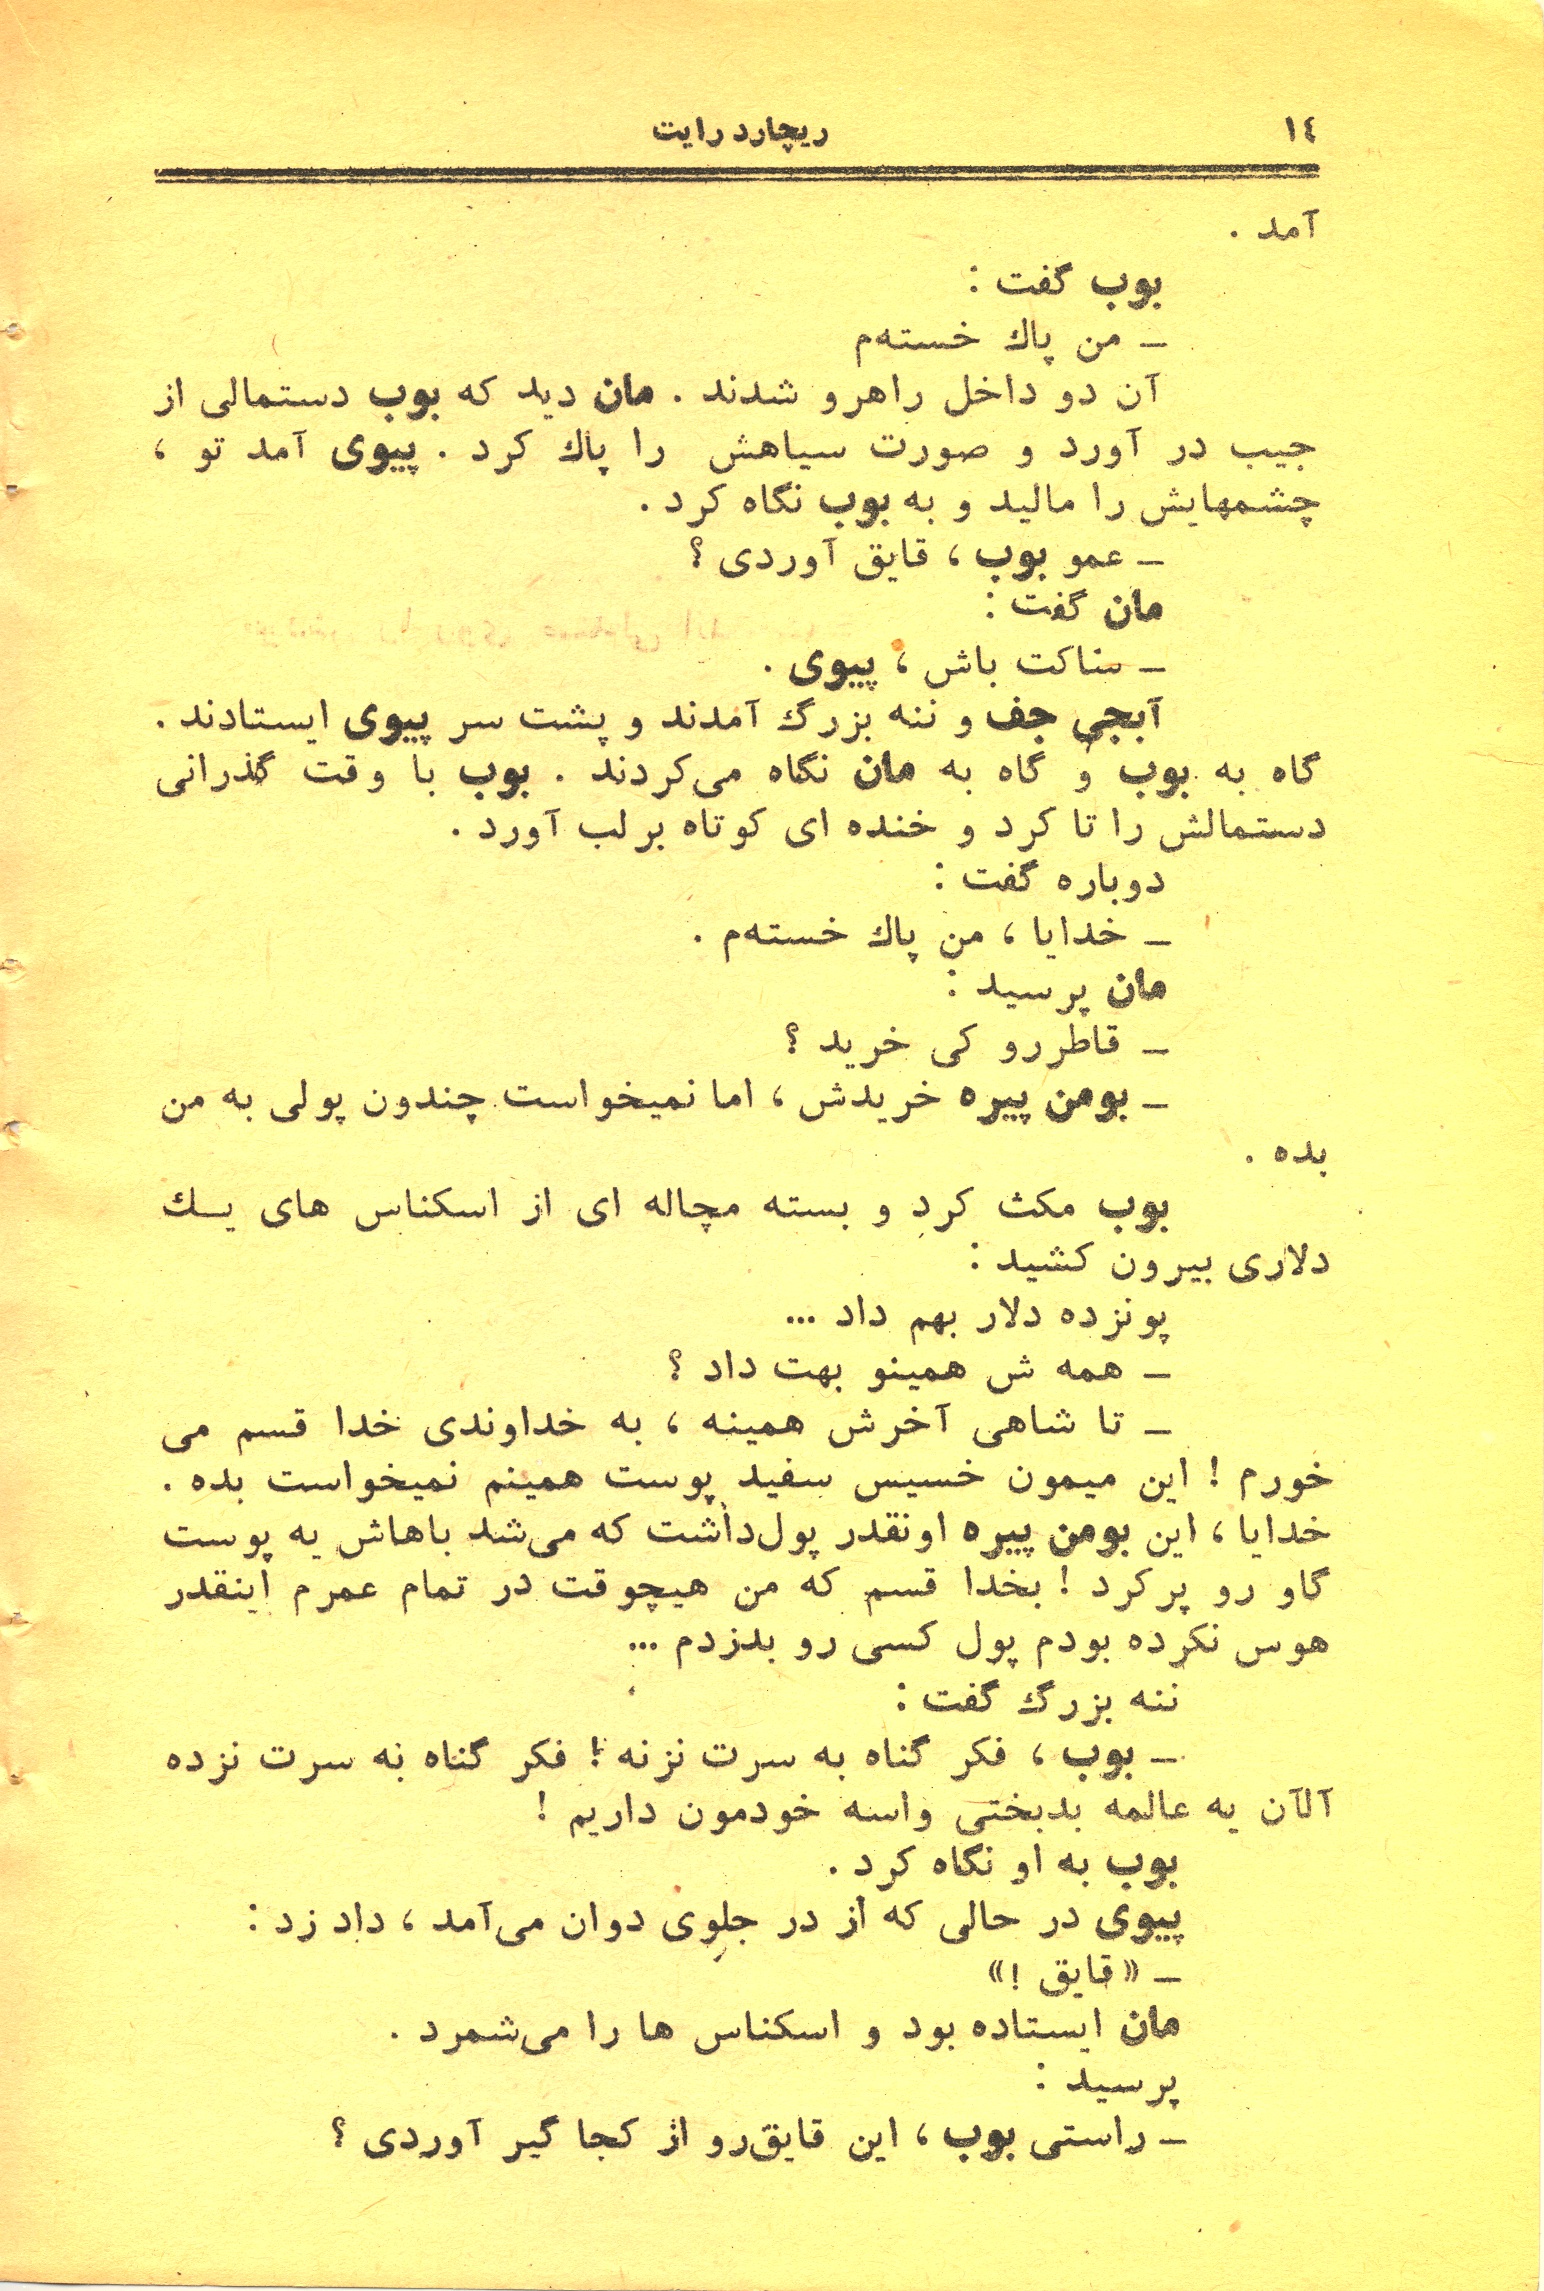 ۱٤
ریچارد رایت
آمد .
بوب گفت :
ـ من پاك خسته‌م
آن دو داخل راهرو شدند . مان دید که بوب دستمالی از
جیب در آورد و صورت سیاهش را پاك کرد . پیوی آمد تو ،
چشمهایش را مالید و به بوب نگاه کرد .
ـ عمو بوب ، قایق آوردی ؟
مان گفت :
ـ ساکت باش ، پیوی .
آبجی جف و ننه بزرگ آمدند و پشت سر پیوی ایستادند .
گاه به بوب و گاه به مان نگاه می‌کردند . بوب با وقت گذرانی
دستمالش را تا کرد و خنده ای کوتاه بر لب آورد .
دوباره گفت :
ـ خدایا ، من پاك خسته‌م .
مان پرسید :
ـ قاطررو کی خرید ؟
ـ بومن پیره خریدش ، اما نمیخواست چندون پولی به من
بده .
بوب مکث کرد و بسته مچاله ای از اسکناس های یـك
دلاری بیرون کشید :
پونزده دلار بهم داد ...
ـ همه ش همینو بهت داد ؟
ـ تا شاهی آخرش همینه ، به خداوندی خدا قسم می
خورم ! این میمون خسیس سفید پوست همینم نمیخواست بده .
خدایا ، این بومن پیره اونقدر پول‌داشت که می‌شد باهاش یه پوست
گاو رو پرکرد ! بخدا قسم که من هیچوقت در تمام عمرم اینقدر
هوس نکرده بودم پول کسی رو بدزدم ...
ننه بزرگ گفت :
ـ بوب ، فکر گناه به سرت نزنه ! فکر گناه به سرت نزده
آلآن یه عالمه بدبختی واسه خودمون داریم !
بوب به او نگاه کرد .
پیوی در حالی که از در جلوی دوان می‌آمد ، داد زد :
ـ «قایق !»
مان ایستاده بود و اسکناس ها را می‌شمرد .
پرسید :
ـ راستی بوب ، این قایق‌رو از کجا گیر آوردی ؟